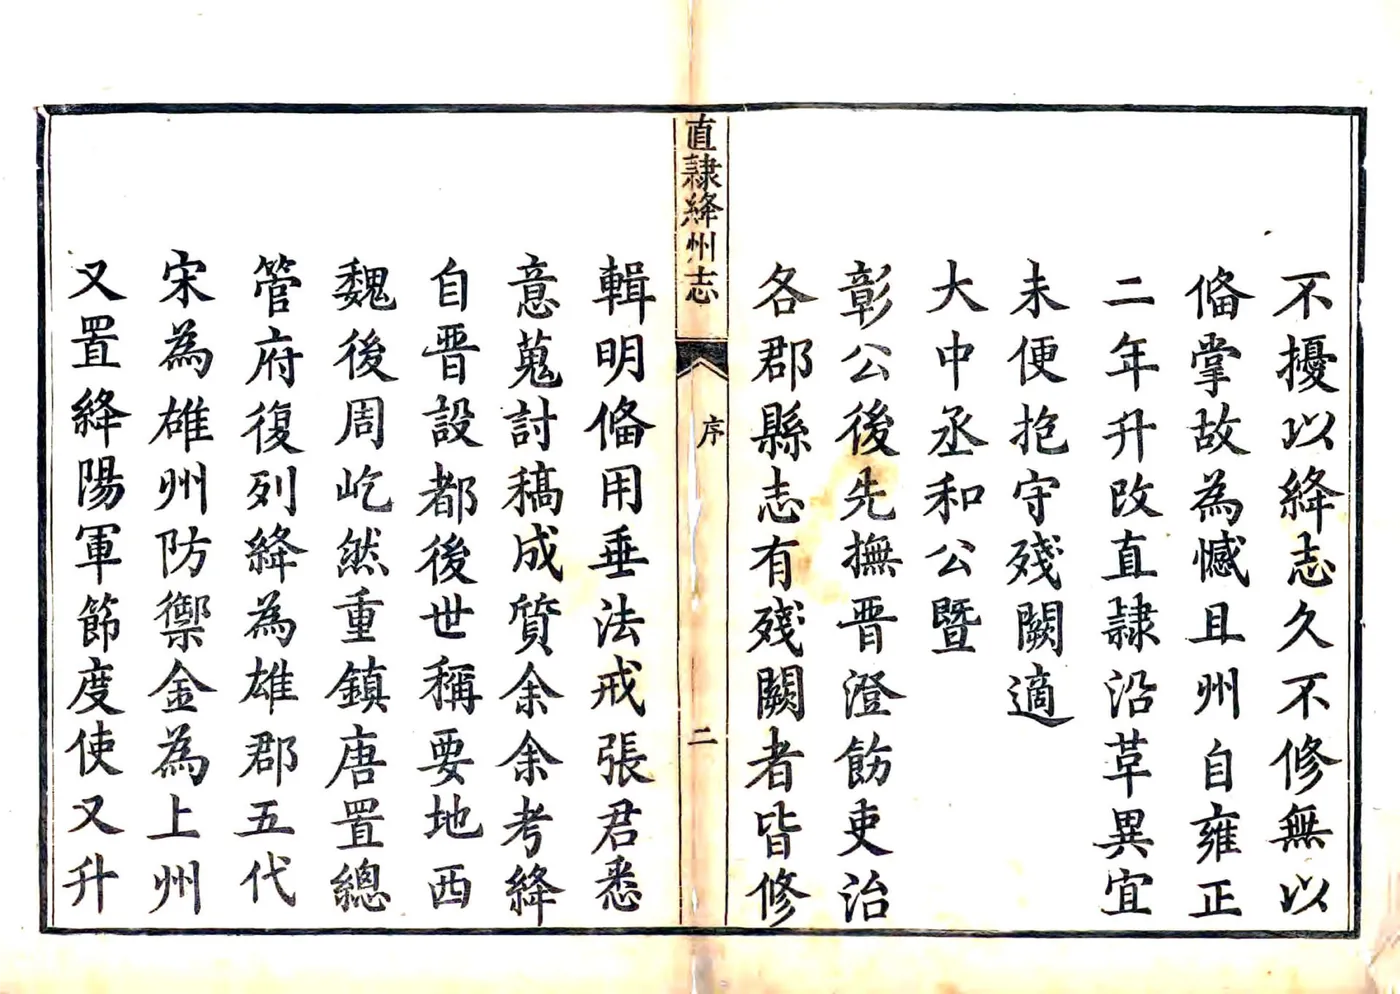 不擾以絳志久不修無以
俻掌故為憾且州自雍正
二年升改直隷沿革異宜
未便抱守殘闕適
大中丞和公暨
彰公後先撫晋澄飭吏治
各郡縣志有殘闕者皆修
直隷絳州志
序
二
輯明俻用垂法戒張君悉
意蒐討稿成質余余考絳
自晋設都後世稱要地西
魏後周屹然重鎮唐置總
管府復列絳為雄郡五代
宋為雄州防禦金為上州
又置絳陽軍節度使又升